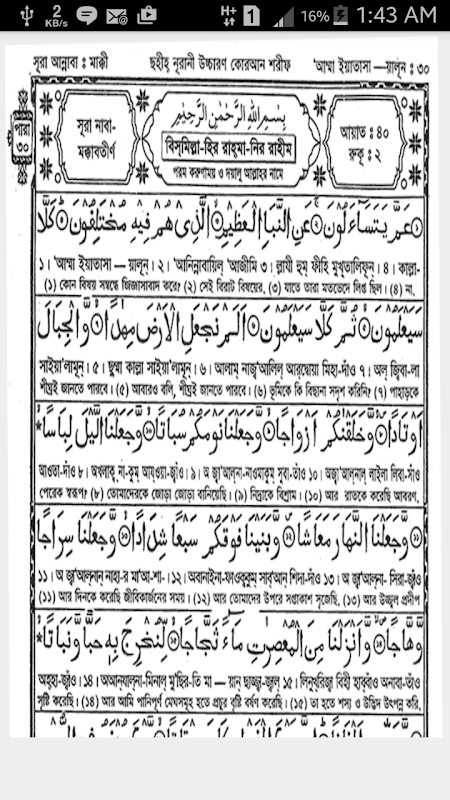 2 KB/s H+ 1 16% 1:43 AM
সূরা আন্নাবা : মাক্কী ছহীহ্ নূরানী উচ্চারণ কোরআন শরীফ 'আম্মা ইয়াতাসা —য়ালূন : ৩০
পারা ৩০
সূরা নাবা-
মক্কাবতীর্ণ
بِسْمِ اللهِ الرَّحْمٰنِ الرَّحِيْمِ
বিস্‌মিল্লা-হির রাহ্‌মা-নির রাহীম
পরম করুণাময় ও দয়ালু আল্লাহর নামে
আয়াত : ৪০
রুকূ : ২
عَمَّ يَتَسَآءَلُوْنَ ۝١ عَنِ النَّبَاِ الْعَظِيْمِ ۝٢ الَّذِيْ هُمْ فِيْهِ مُخْتَلِفُوْنَ ۝٣ كَلَّا
১। 'আম্মা ইয়াতাসা — য়ালূন। ২। 'আনিন্নাবায়িল্ 'আজীমি ৩। ল্লাযী হুম্ ফীহি মুখ্‌তালিফূন্। ৪। কাল্লা-
(১) কোন বিষয় সম্বন্ধে জিজ্ঞাসাবাদ করে? (২) সেই বিরাট বিষয়ের, (৩) যাতে তারা মতভেদে লিপ্ত ছিল। (৪) না,
سَيَعْلَمُوْنَ ۝٤ ثُمَّ كَلَّا سَيَعْلَمُوْنَ ۝٥ اَلَمْ نَجْعَلِ الْاَرْضَ مِهٰدًا ۝٦ وَّالْجِبَالَ
সাইয়া'লামূন্। ৫। ছুম্মা কাল্লা সাইয়া'লামূন্। ৬। আলাম্ নাজ্'আলিল্ আরদ্বোয়া মিহা-দাঁও ৭। অল্ জ্বিবা-লা
শীঘ্রই জানতে পারবে। (৫) আবারও বলি, শীঘ্রই জানতে পারবে। (৬) ভূমিকে কি বিছানা সদৃশ করিনি? (৭) পাহাড়কে
اَوْتَادًا ۝٧ وَّخَلَقْنٰكُمْ اَزْوَاجًا ۝٨ وَّجَعَلْنَا نَوْمَكُمْ سُبَاتًا ۝٩ وَّجَعَلْنَا الَّيْلَ لِبَاسًا ۝١٠
আওতা-দাঁও ৮। অখলাক্ব্ না-কুম্ আয্ওয়া-জ্বাঁও। ৯। অ জ্বা'আল্‌না-নাওমাকুম্ সুবা-তাঁও। ১০। অজ্বা'আল্‌নাল্ লাইলা লিবা-সাঁও
পেরেক স্বরূপ? (৮) তোমাদেরকে জোড়া জোড়া বানিয়েছি। (৯) নিদ্রাকে বিশ্রাম। (১০) আর রাতকে করেছি আবরণ,
وَّجَعَلْنَا النَّهَارَ مَعَاشًا ۝١١ وَّبَنَيْنَا فَوْقَكُمْ سَبْعًا شِدَادًا ۝١٢ وَّجَعَلْنَا سِرَاجًا
১১। অ জ্বা'আল্‌নান্ নাহা-র মা'আ-শা-। ১২। অবানাইনা-ফাওক্বাকুম্ সাব্'আন্ শিদা-দাঁও ১৩। অ জ্বা'আল্‌না- সিরা-জাঁও
(১১) আর দিনকে করেছি জীবিকার্জনের সময়। (১২) আর তোমাদের উপরে সপ্তাকাশ সৃজেছি, (১৩) আর উজ্জ্বল প্রদীপ
وَّهَّاجًا ۝١٣ وَّاَنْزَلْنَا مِنَ الْمُعْصِرٰتِ مَآءً ثَجَّاجًا ۝١٤ لِّنُخْرِجَ بِهٖ حَبًّا وَّنَبَاتًا ۝١٥
অহ্হা-জ্বাঁও। ১৪। অআন্‌যাল্‌না-মিনাল্ মু'ছিরা-তি মা — য়ান্ ছাজ্জ্বা-জ্বাল্ ১৫। লিনুখ্‌রিজ্বা বিহী হাব্বাঁও অনাবা-তাঁও
সৃষ্টি করেছি। (১৪) আর আমি পানিপূর্ণ মেঘসমূহ হতে প্রচুর বৃষ্টি বর্ষণ করেছি। (১৫) তা হতে শস্য ও উদ্ভিদ উৎপন্ন করি,